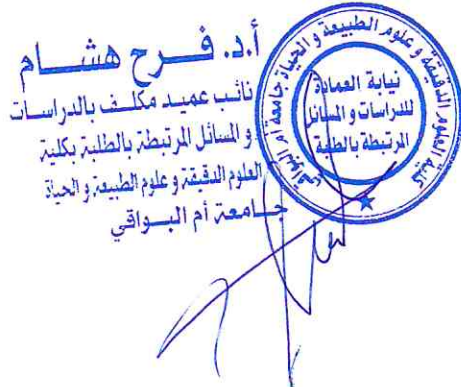 أ.د. فـــرح هشـــام
نائب عميد مكلف بالدراسات
و المسائل المرتبطة بالطلبة بكلية
العلوم الدقيقة و علوم الطبيعة و الحياة
جـامعة أم البـواقي
كلية العلوم الدقيقة و علوم الطبيعة و الحياة جامعة أم البواقي
نيابة العمادة
للدراسات و المسائل
المرتبطة بالطلبة